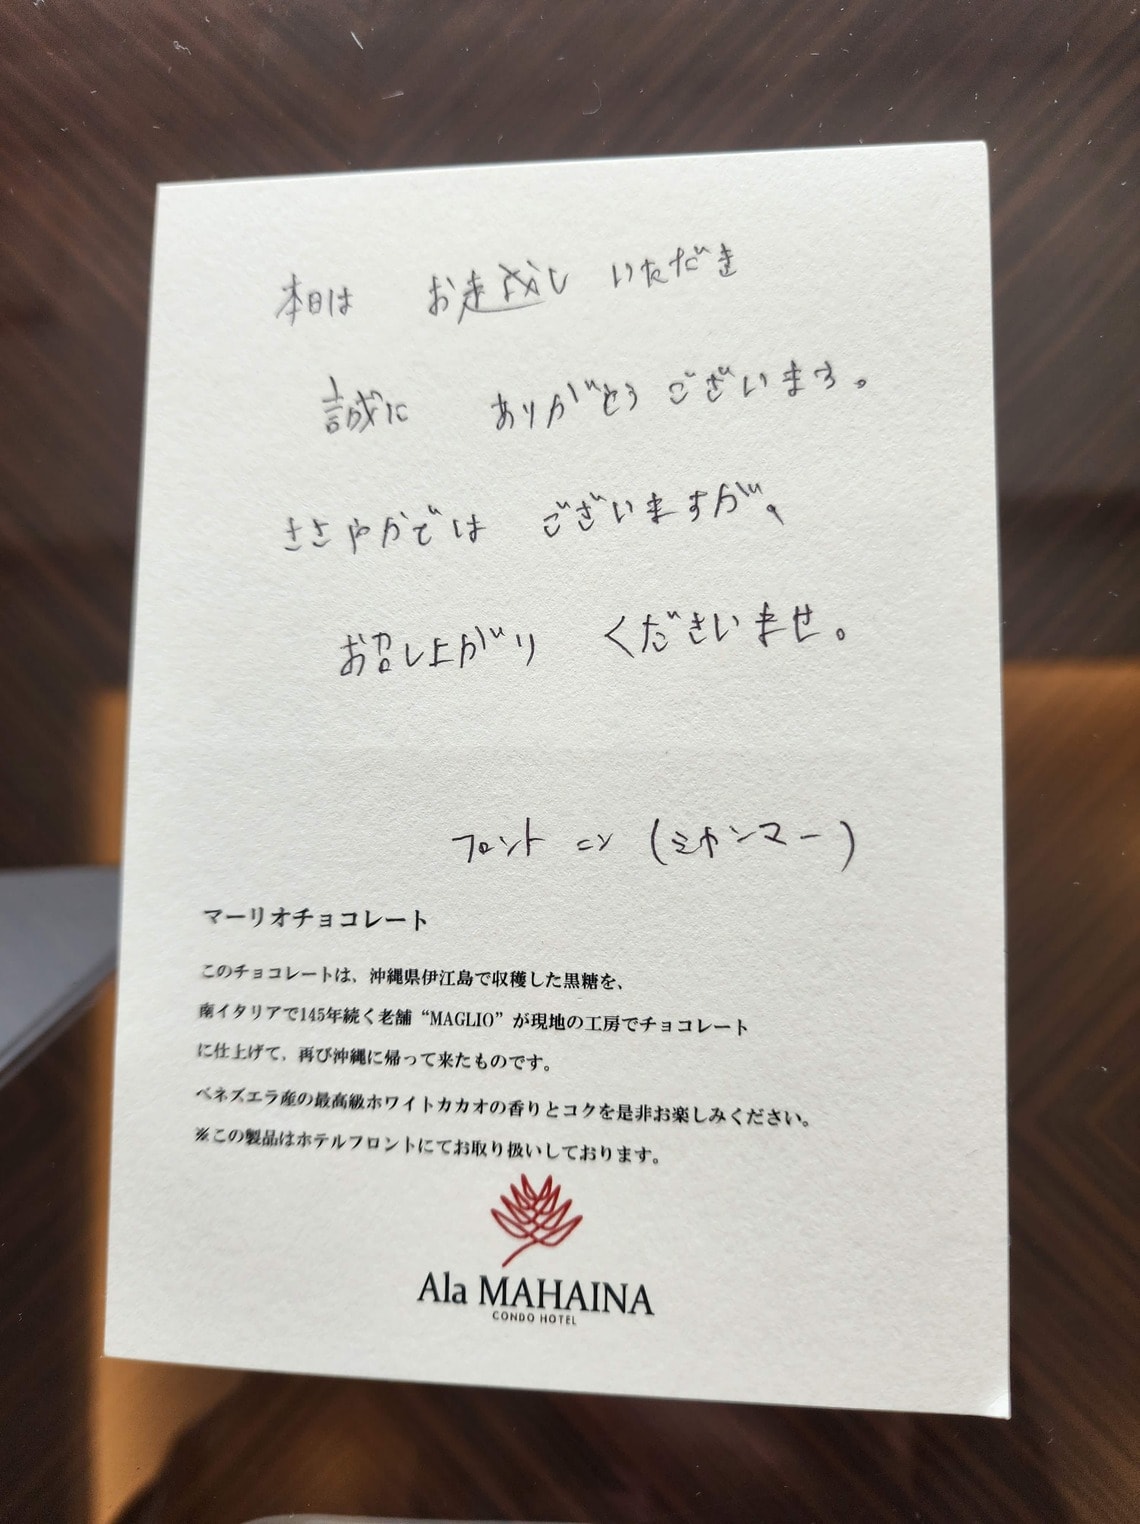 本日は お越し いただき
誠に ありがとう ございます。
ささやかでは ございますが、
お召し上がり くださいませ。
フロント ニン (ミャンマー)
マーリオチョコレート
このチョコレートは、沖縄県伊江島で収穫した黒糖を、
南イタリアで145年続く老舗“MAGLIO”が現地の工房でチョコレート
に仕上げて、再び沖縄に帰って来たものです。
ベネズエラ産の最高級ホワイトカカオの香りとコクを是非お楽しみください。
※この製品はホテルフロントにてお取り扱いしております。
Ala MAHAINA
CONDO HOTEL